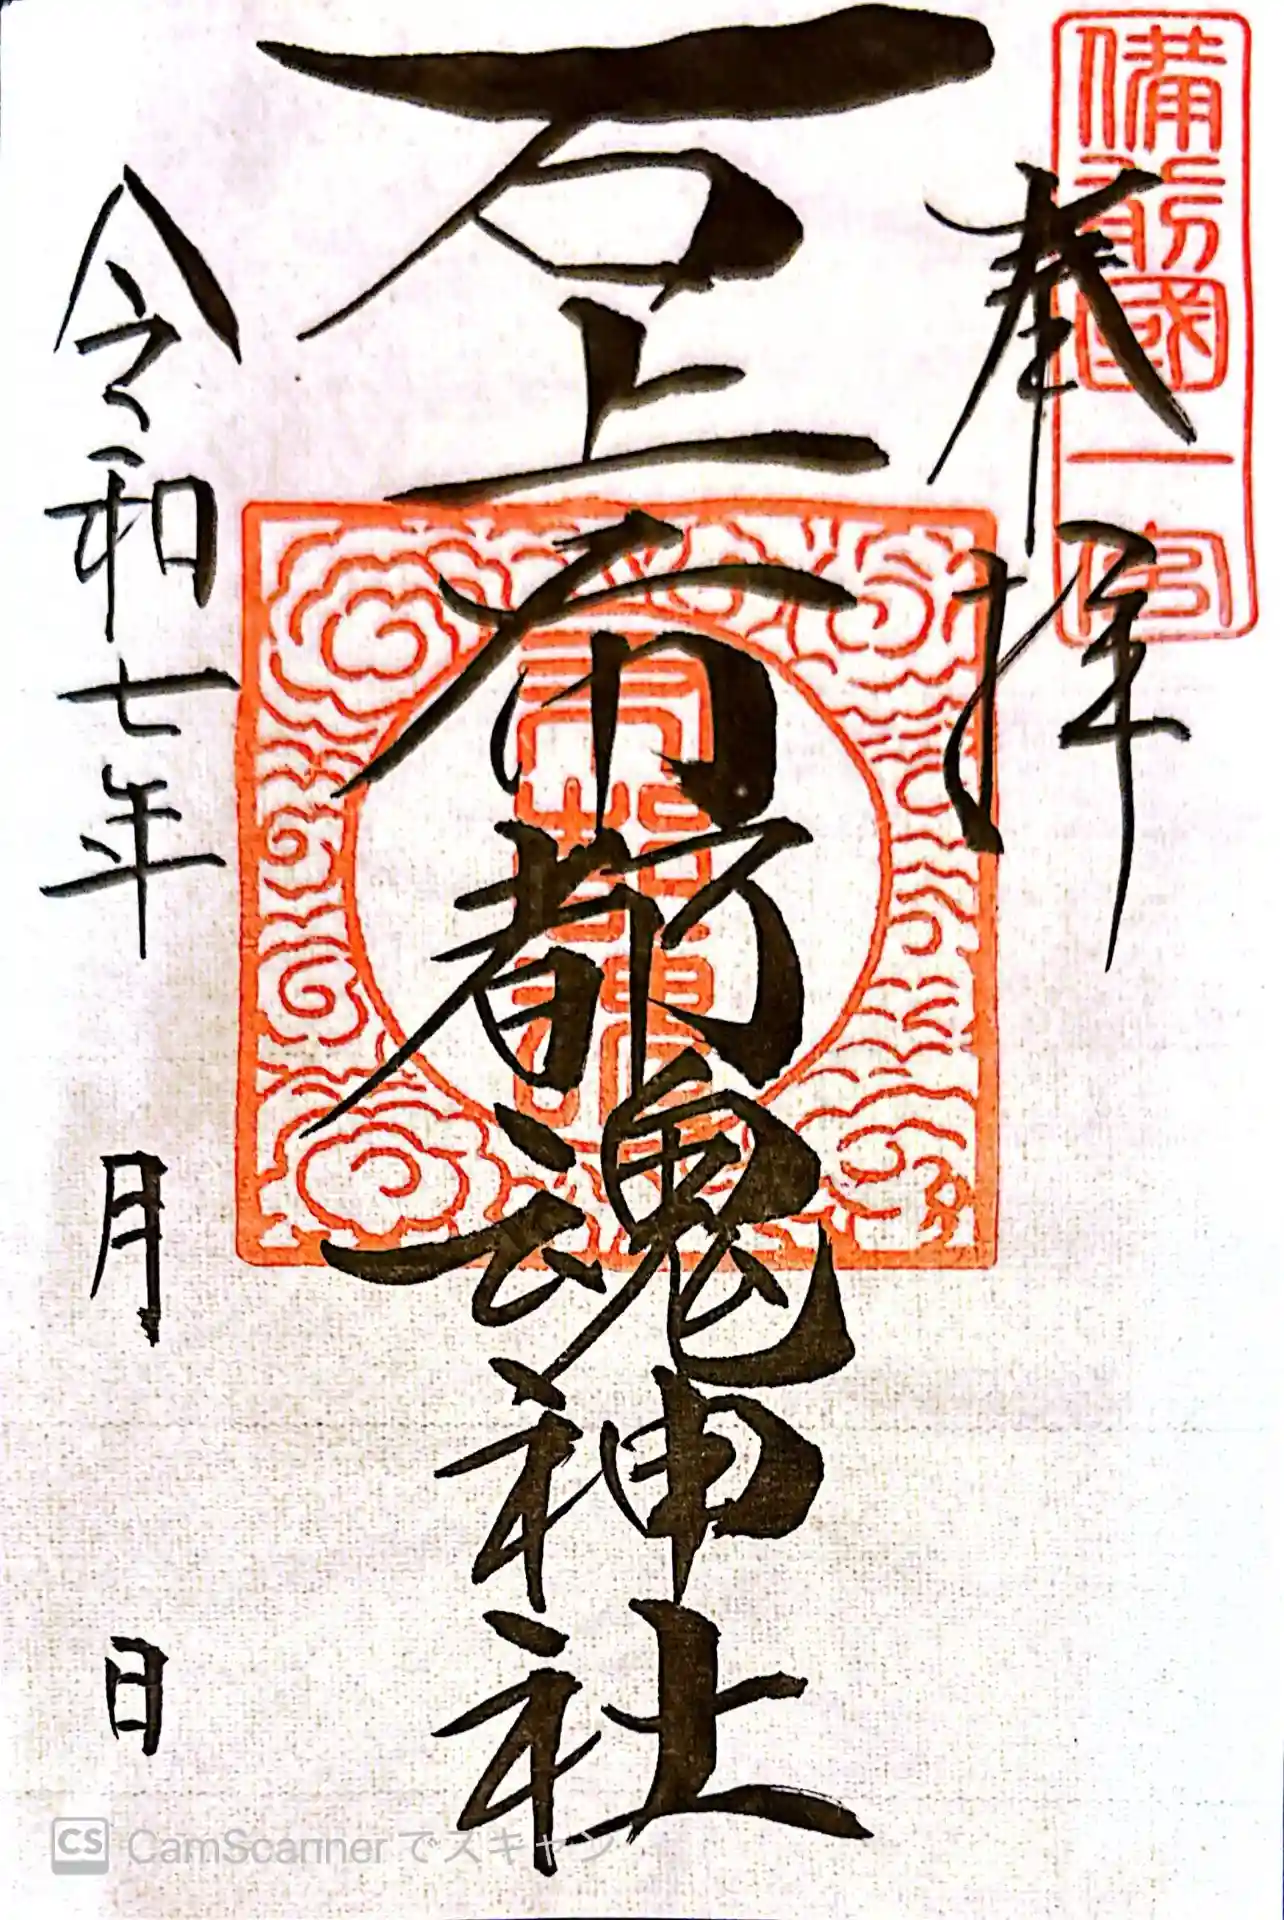 備前國一宮
奉拝
石上布都魂神社
布都魂
令和七年 月 日
CS CamScannerでスキャン